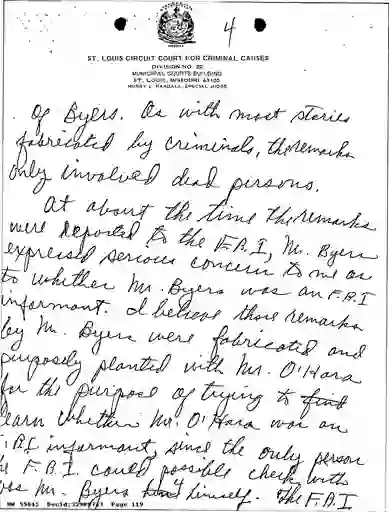 4
ST. LOUIS CIRCUIT COURT FOR CRIMINAL CAUSES
DIVISION NO. 22
MUNICIPAL COURTS BUILDING
ST. LOUIS, MISSOURI 63103
of Byers. As with most stories
fabricated by criminals, the remarks
only involved dead persons.
At about the time the remarks
were reported to the F.B.I, Mr. Byers
expressed serious concern to me as
to whether Mr. Byers was an F.B.I
informant. I believe those remarks
by Mr. Byers were fabricated and
purposely planted with Mr. O'Hara
for the purpose of trying to find
learn whether Mr. O'Hara was an
F.B.I informant, since the only person
F.B.I. could possible check with
was Mr. Byers himself. The F.B.I
Page 119